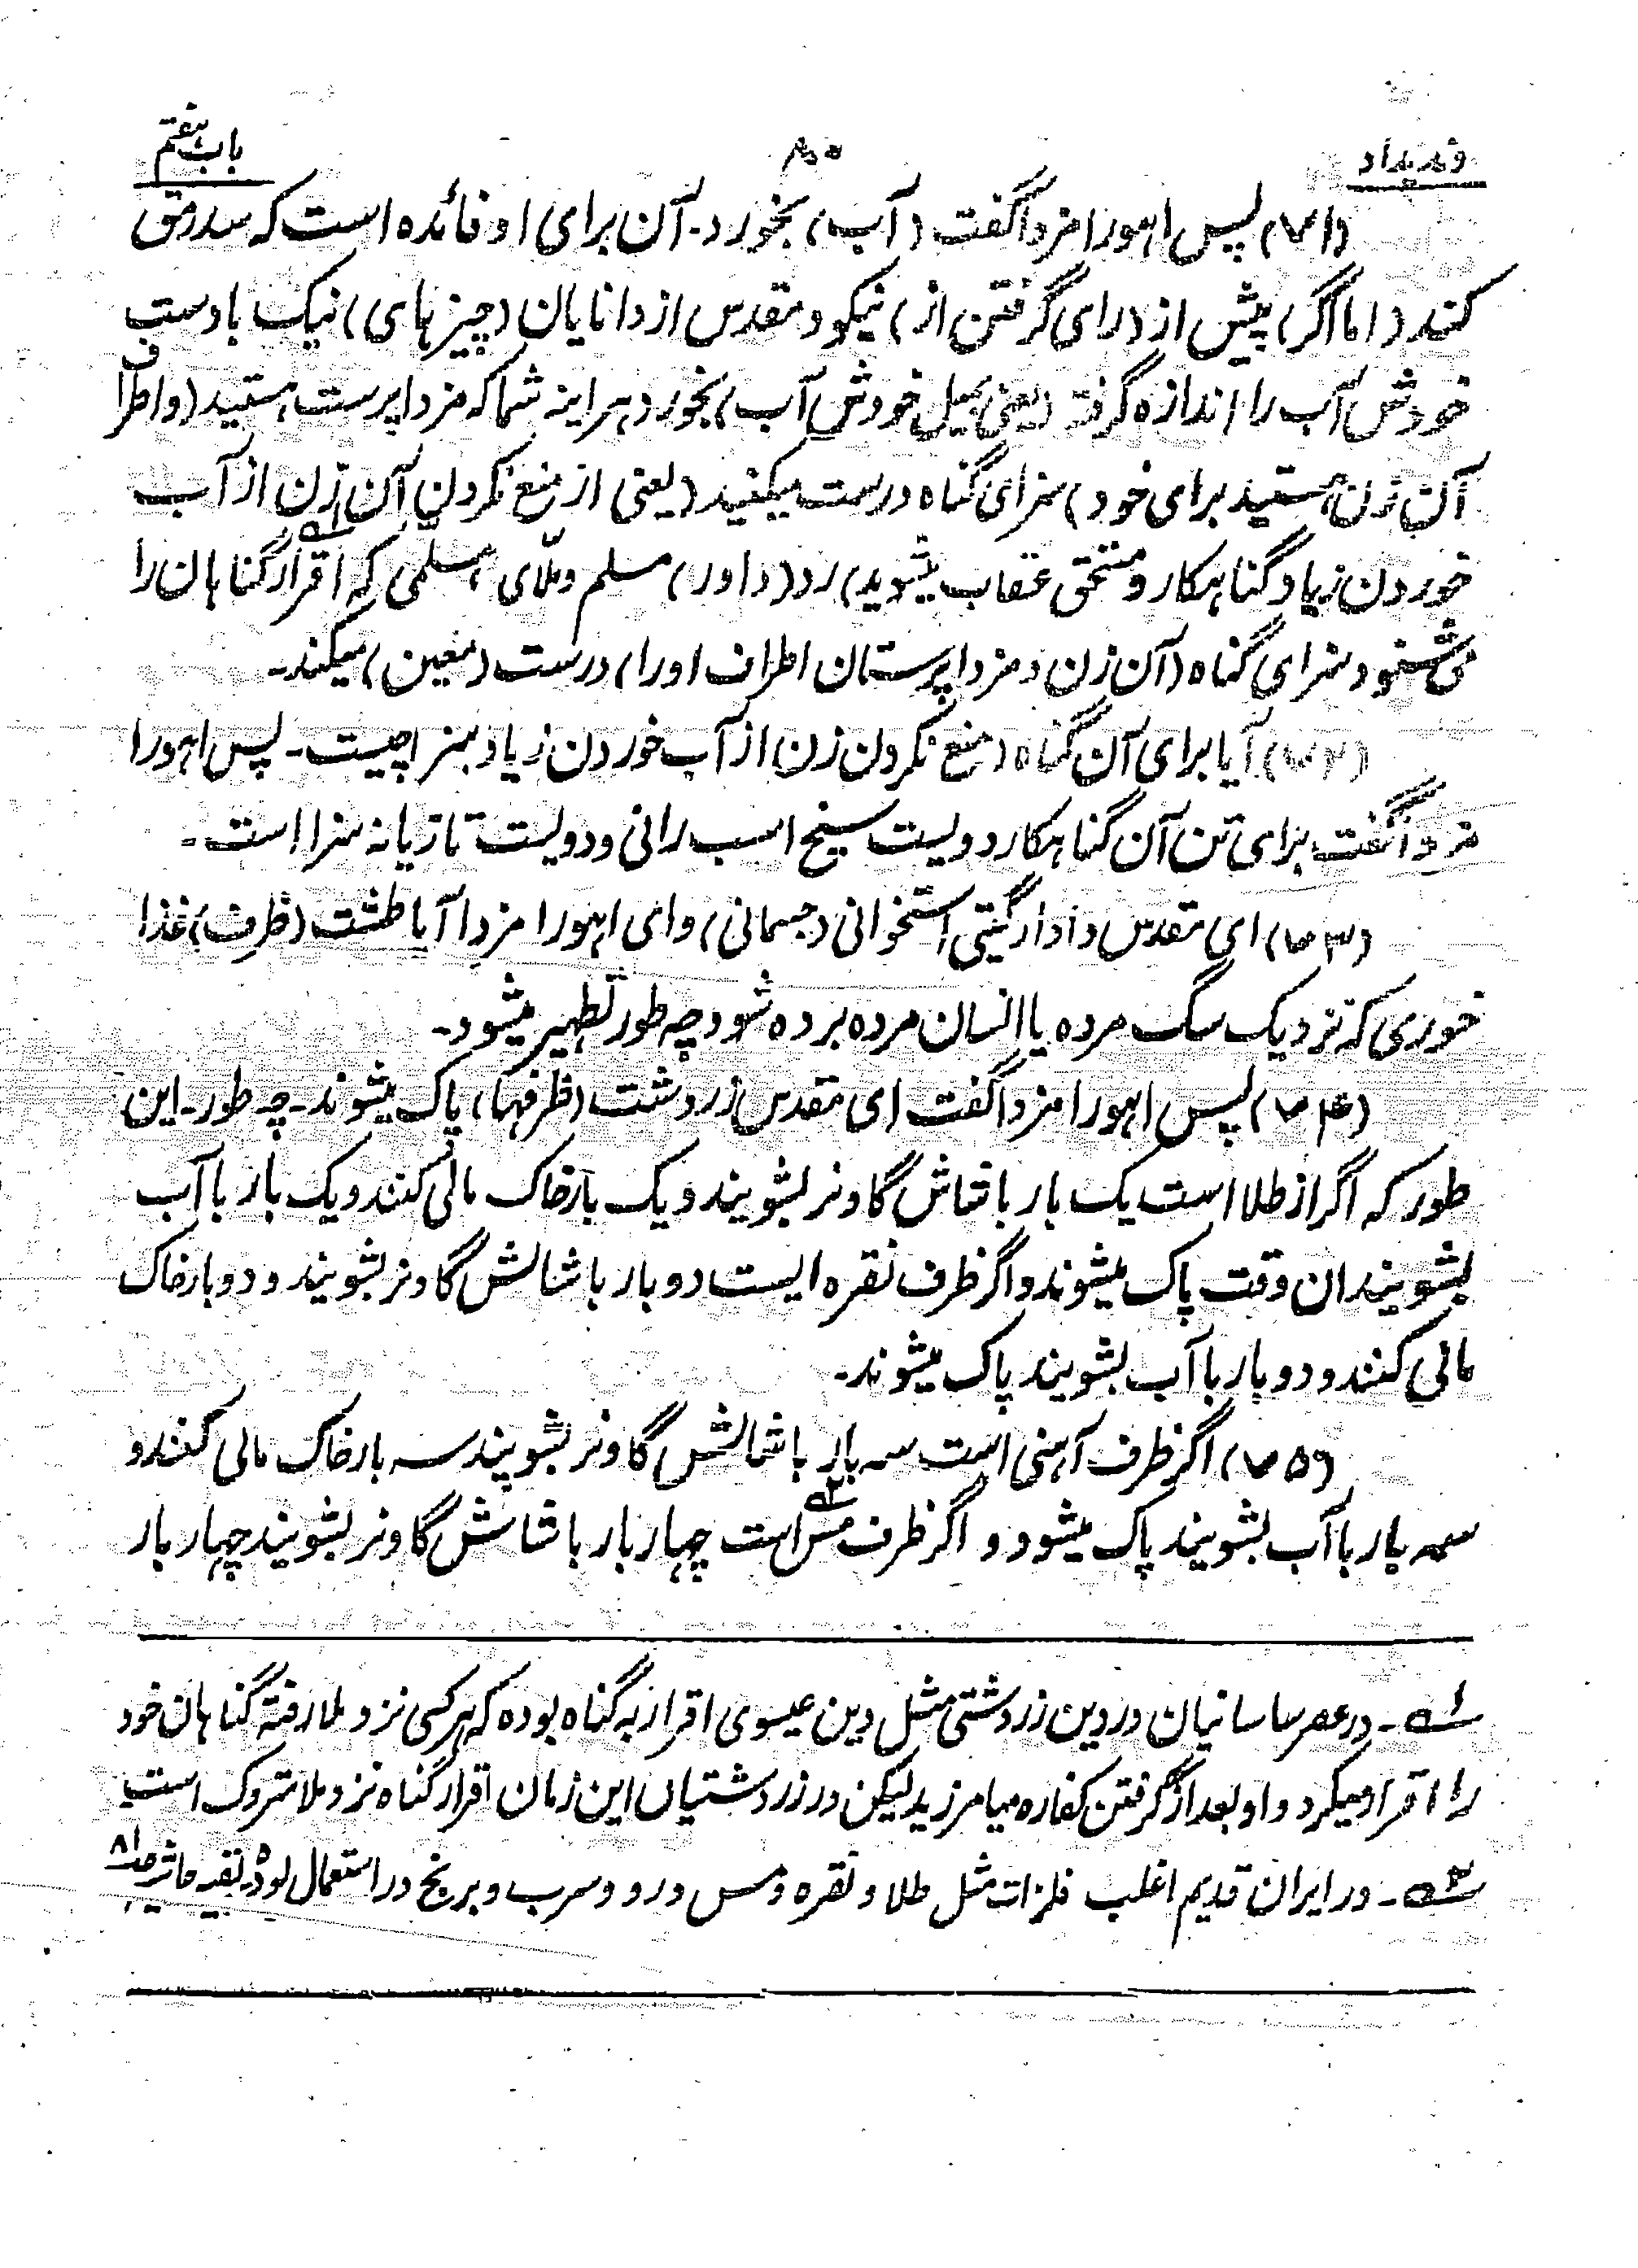 وندیداد ۸۰ باب هفتم
(۷۱) پس اهورا مزدا گفت (آب) بخورد۔ آن برای او فائده است که سد رمق
کند (اما اگر) پیش از (رای گرفتن از) نیکو و مقدس از دانایان (چیزهای) نیک با دست
خودش آب را اندازه گرفته (یعنی بمیل خودش آب) بخورد هراینه شما که مزدا پرست هستید (و اطراف
آن زن هستید برای خود) سزای گناه درست میکنید (یعنی از منع نکردن آن زن از آب
خوردن زیاد گناهکار و مستحق عقاب میشوید) رد (داور) مسلم و ملّای مسلمی که اقرار ؎۱ گناهان را
می شنود سزای گناه (آن زن و مزدا پرستان اطراف او را) درست (معین) میکند۔
(۷۲) آیا برای آن گناه (منع نکردن زن از آب خوردن زیاد) سزا چیست۔ پس اهورا
مزدا گفت برای تن آن گناهکار دویست سیخ اسب رانی و دویست تازیانه سزا است۔
(۷۳) ای مقدس و دادار گیتی استخوانی (جسمانی) و ای اهورا مزدا آیا طشت (ظرف) غذا
خوری که نزدیک سگ مرده یا انسان مرده برده شود چه طور تطهیر میشود۔
(۷۴) پس اهورا مزدا گفت ای مقدس زردشت (ظرفها) پاک میشوند۔ چه طور۔ این
طور که اگر از طلا است یک بار با شاش گاو نر بشویند و یک بار خاک مالی کنند و یک بار با آب
بشویند ان وقت پاک میشوند و اگر ظرف نقره ایست دو بار با شاش گاو نر بشویند و دو بار خاک
مالی کنند و دو بار با آب بشویند پاک میشوند۔
(۷۵) اگر ظرف آهنی است سه بار با شاش گاو نر بشویند سه بار خاک مالی کنند و
سه بار با آب بشویند پاک میشود و اگر ظرف مس ؎۲ است چهار بار با شاش گاو نر بشویند چهار بار
؎۱۔ در عصر ساسانیان در دین زردشتی مثل دین عیسوی اقرار به گناه بوده که هر کسی نزد ملا رفته گناهان خود
را اقرار میکرد و او بعد از گرفتن کفاره میامرزید لیکن در زردشتیان این زمان اقرار گناه نزد ملا متروک است
؎۲۔ در ایران قدیم اغلب فلزات مثل طلا و نقره و مس و رو و سرب و برنج در استعمال بوده۔ بقیه حاشیه ص ۸۱